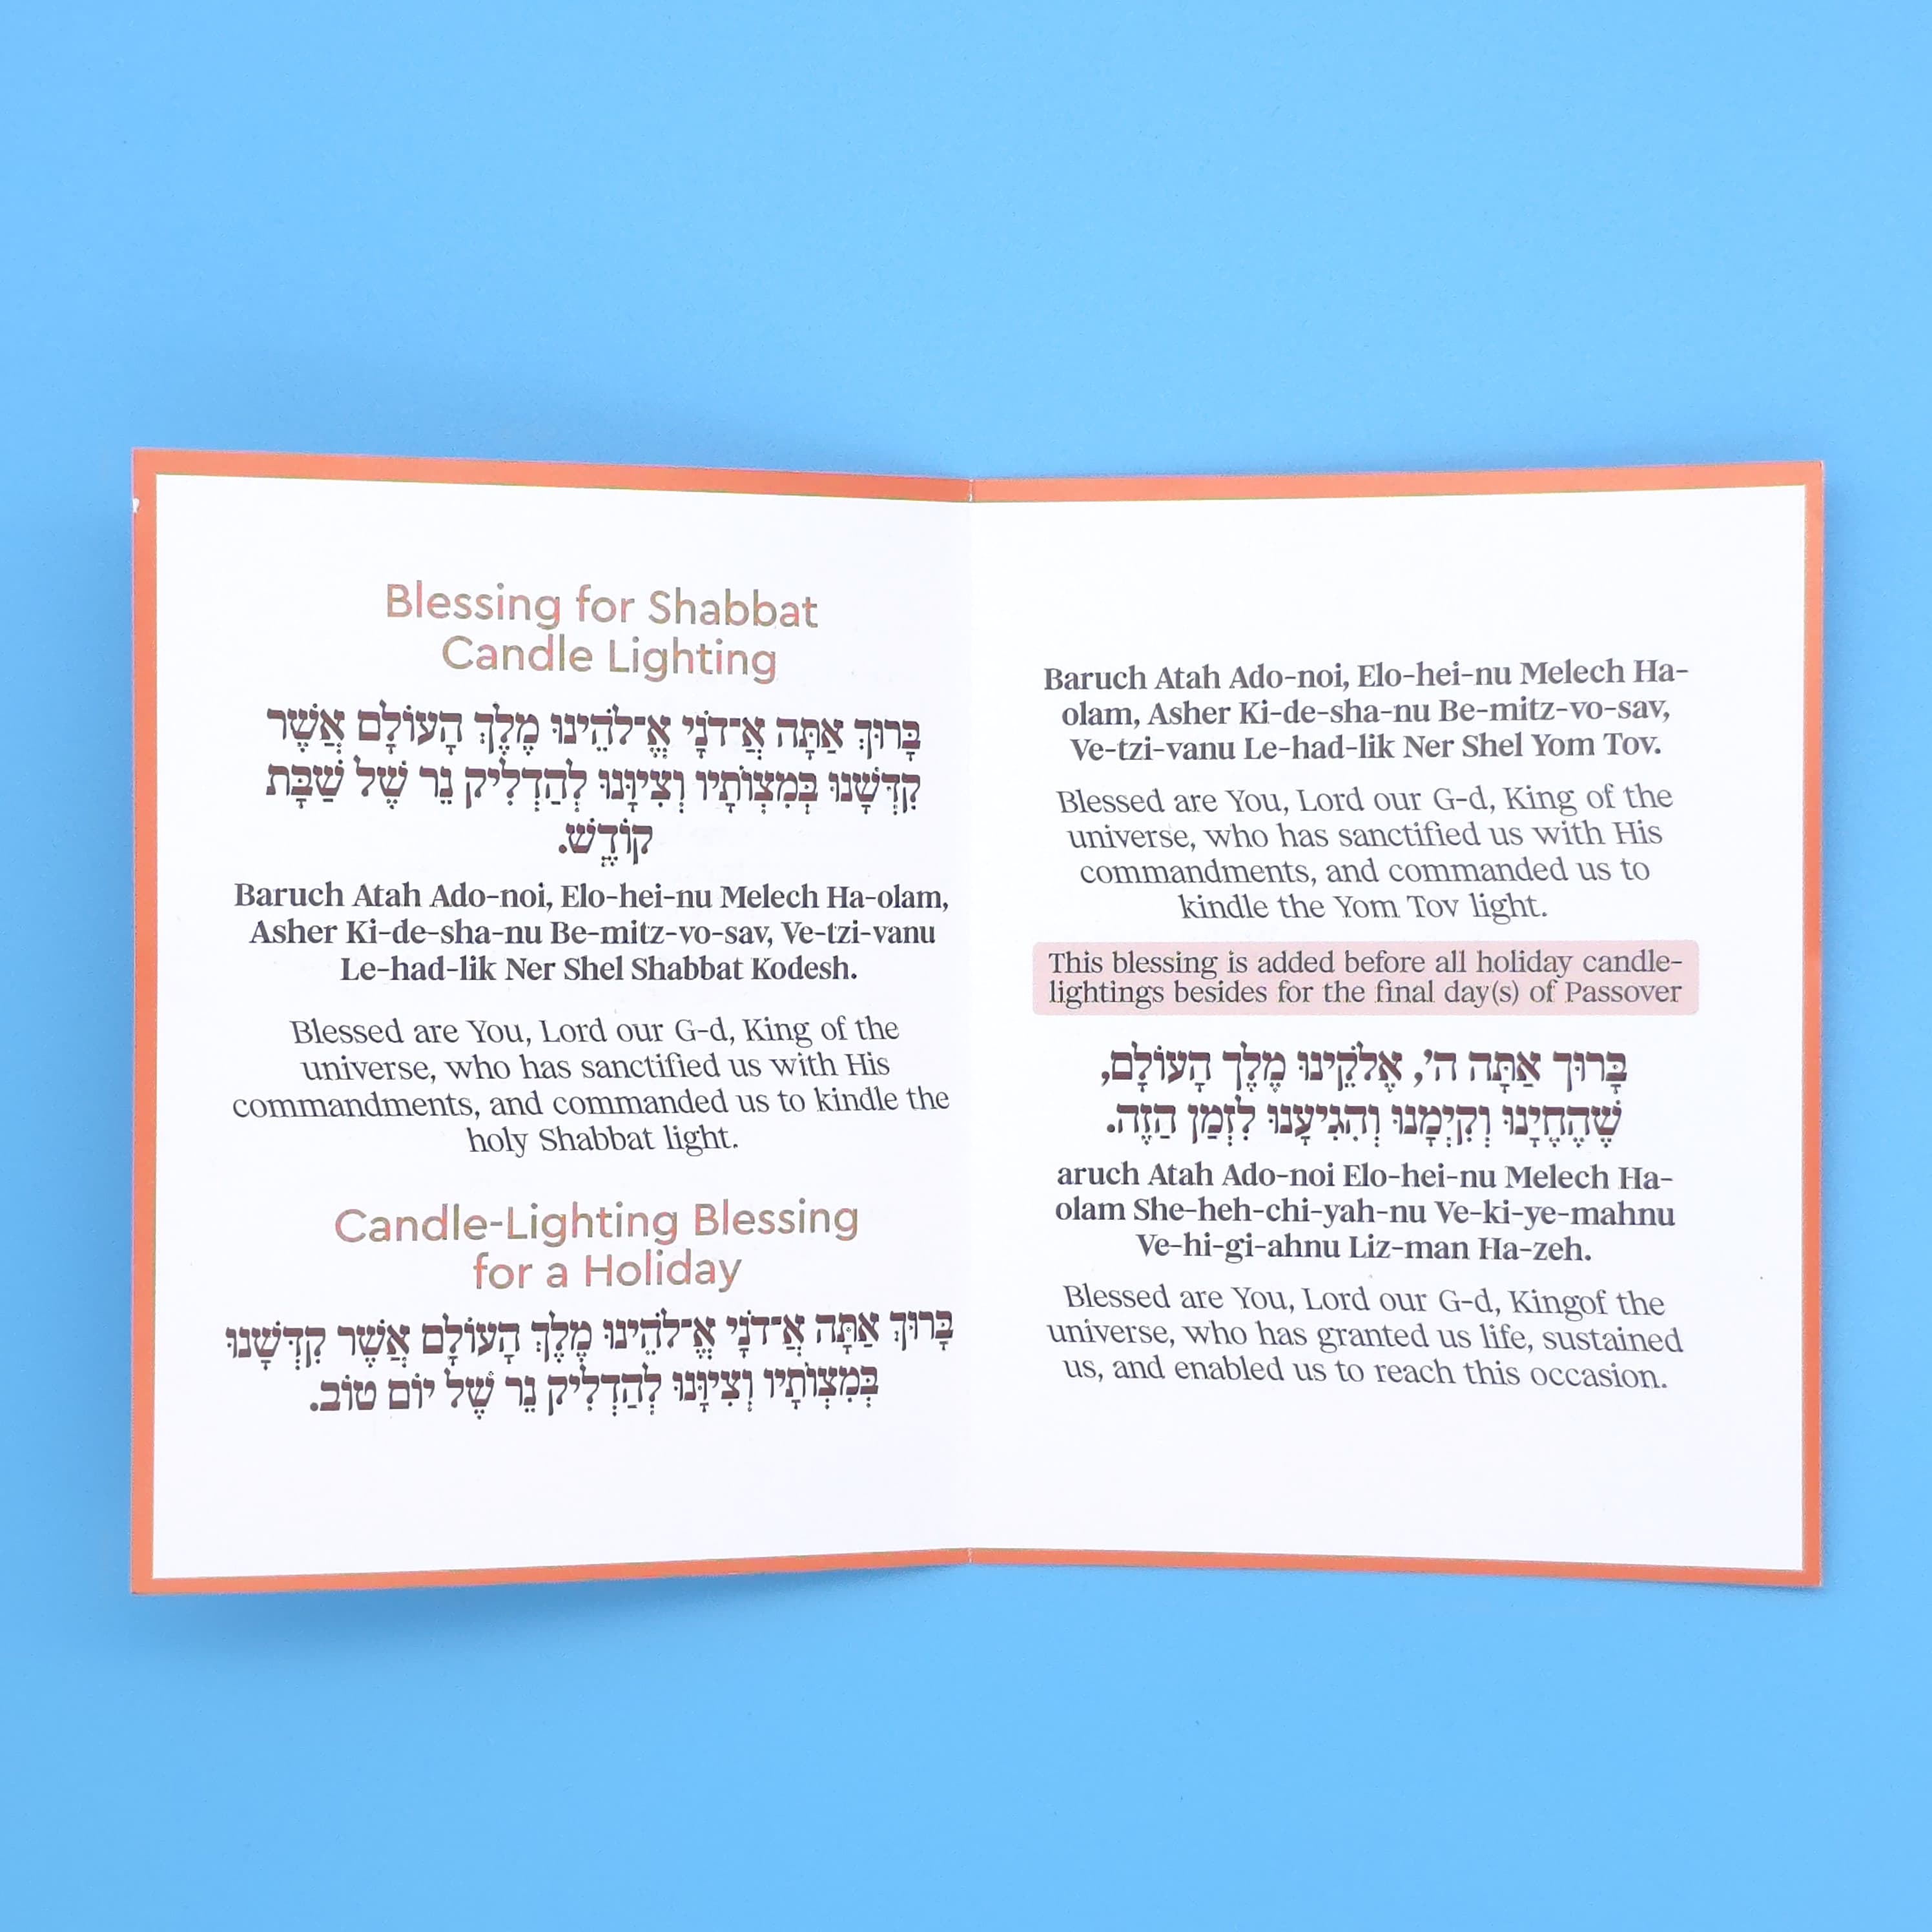 Blessing for Shabbat
Candle Lighting
בָּרוּךְ אַתָּה אֲ־דֹנָי אֱ־לֹהֵינוּ מֶלֶךְ הָעוֹלָם אֲשֶׁר
קִדְּשָׁנוּ בְּמִצְוֹתָיו וְצִיוָּנוּ לְהַדְלִיק נֵר שֶׁל שַׁבָּת
קוֹדֶשׁ.
Baruch Atah Ado-noi, Elo-hei-nu Melech Ha-olam,
Asher Ki-de-sha-nu Be-mitz-vo-sav, Ve-tzi-vanu
Le-had-lik Ner Shel Shabbat Kodesh.
Blessed are You, Lord our G-d, King of the
universe, who has sanctified us with His
commandments, and commanded us to kindle the
holy Shabbat light.
Candle-Lighting Blessing
for a Holiday
בָּרוּךְ אַתָּה אֲ־דֹנָי אֱ־לֹהֵינוּ מֶלֶךְ הָעוֹלָם אֲשֶׁר קִדְּשָׁנוּ
בְּמִצְוֹתָיו וְצִיוָּנוּ לְהַדְלִיק נֵר שֶׁל יוֹם טוֹב.
Baruch Atah Ado-noi, Elo-hei-nu Melech Ha-
olam, Asher Ki-de-sha-nu Be-mitz-vo-sav,
Ve-tzi-vanu Le-had-lik Ner Shel Yom Tov.
Blessed are You, Lord our G-d, King of the
universe, who has sanctified us with His
commandments, and commanded us to
kindle the Yom Tov light.
This blessing is added before all holiday candle-
lightings besides for the final day(s) of Passover
בָּרוּךְ אַתָּה ה', אֱלֹקֵינוּ מֶלֶךְ הָעוֹלָם,
שֶׁהֶחֱיָנוּ וְקִיְּמָנוּ וְהִגִּיעָנוּ לִזְמַן הַזֶּה.
aruch Atah Ado-noi Elo-hei-nu Melech Ha-
olam She-heh-chi-yah-nu Ve-ki-ye-mahnu
Ve-hi-gi-ahnu Liz-man Ha-zeh.
Blessed are You, Lord our G-d, Kingof the
universe, who has granted us life, sustained
us, and enabled us to reach this occasion.